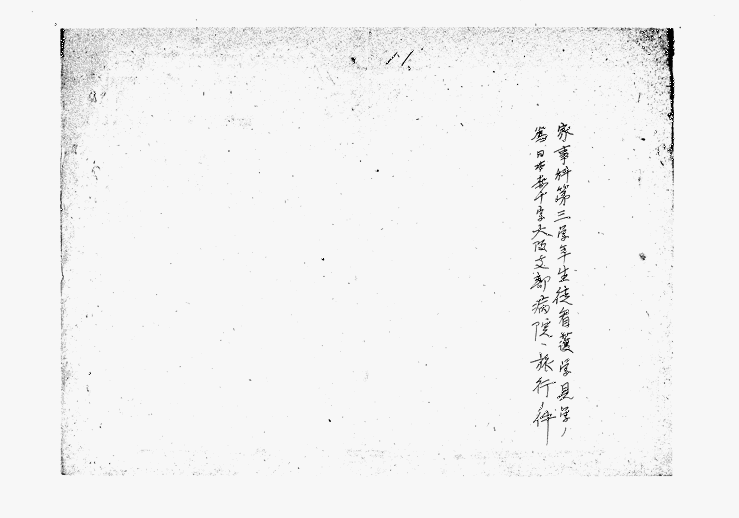 11
家事科第三学年生徒看護学見学ノ
為日本赤十字大阪支部病院ヘ旅行ノ件